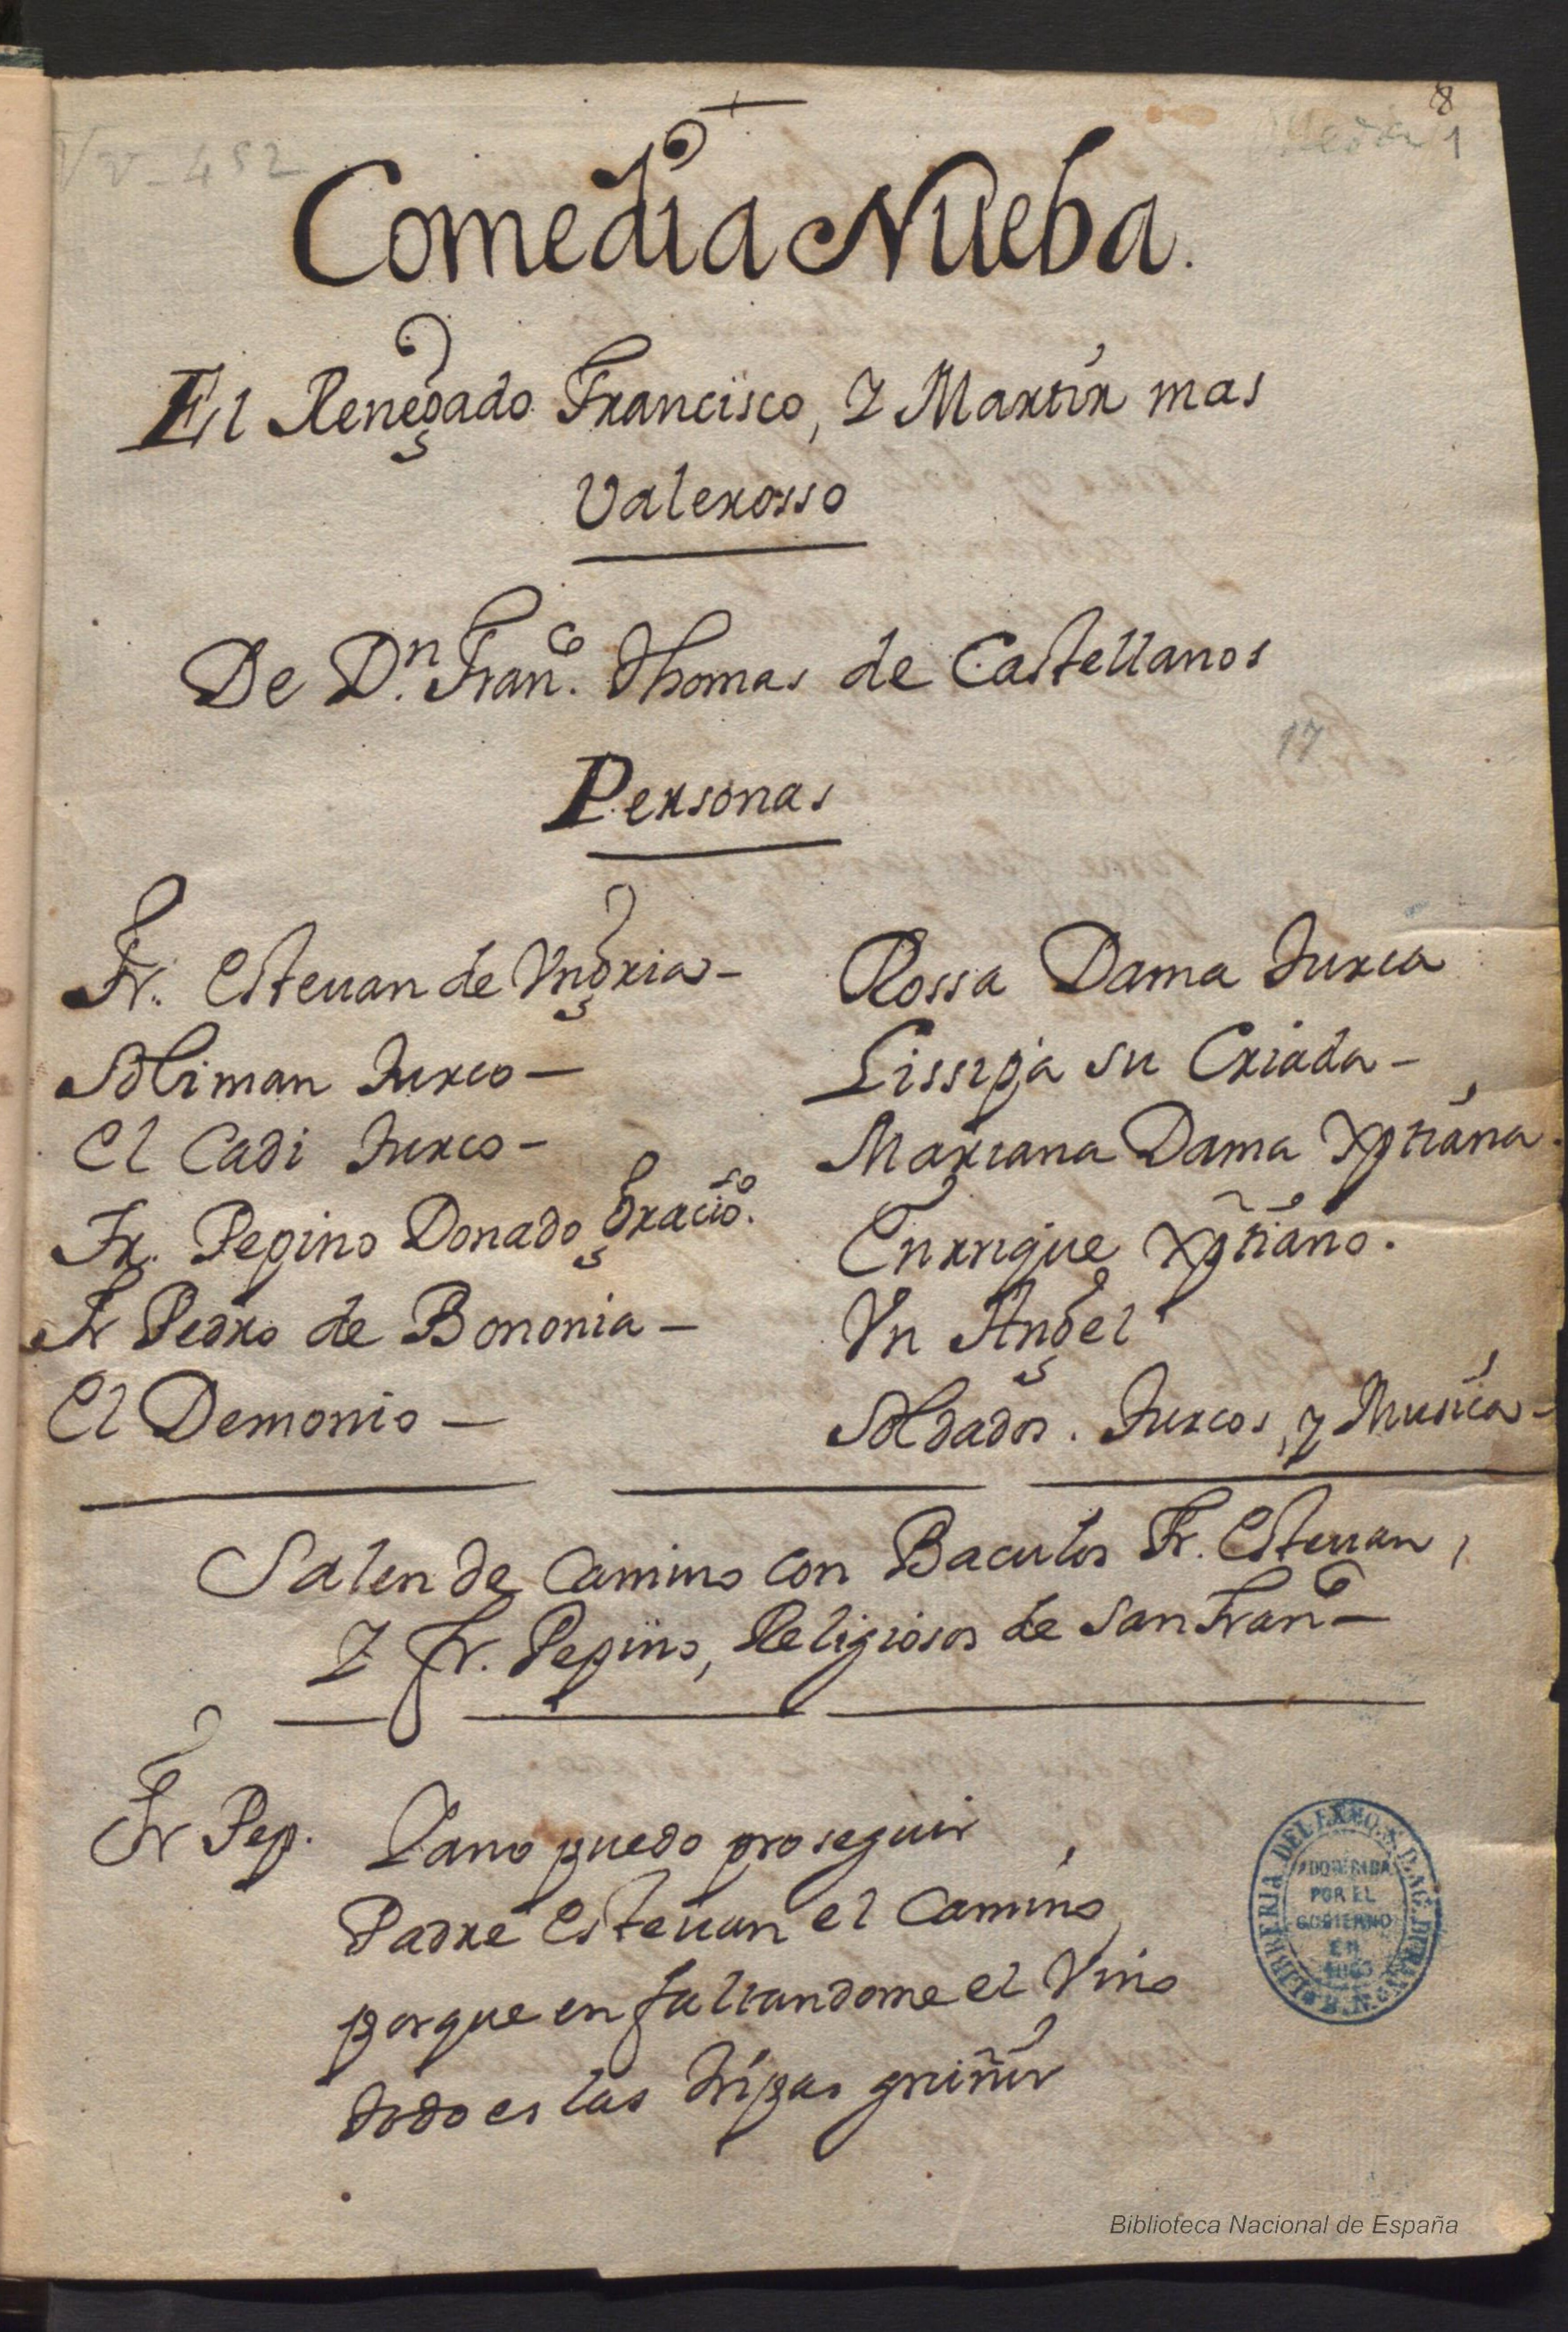 8
1
Vv-452
Comedia Nueba.
El Renegado Francisco, Y Martir mas
Valerosso
De D.n Fran.co Thomas de Castellanos
17
Personas
Fr. Esteuan de Vngria-
Soliman Turco-
El Cadi Turco-
Fr. Pepino Donado Gracio.so
Fr Pedro de Bononia-
El Demonio-
Rossa Dama Turca
Lissipa su Criada-
Mariana Dama Xptiana.
Enrrique Xptiano.
Vn Angel
Soldados. Turcos, y Musica-
Salen de Camino con Baculos Fr. Esteuan,
Y Fr. Pepino, Religiosos de San Fran.co
Fr Pep. Ya no puedo proseguir
Padre Esteuan el Camino,
porque en faltandome el Vino
todo es las tripas gruñir
LIBRERIA DEL EXMO. S. D. AG. DURAN
ADQUIRIDA
POR EL
GOBIERNO
EN
1863
B.N.
Biblioteca Nacional de España